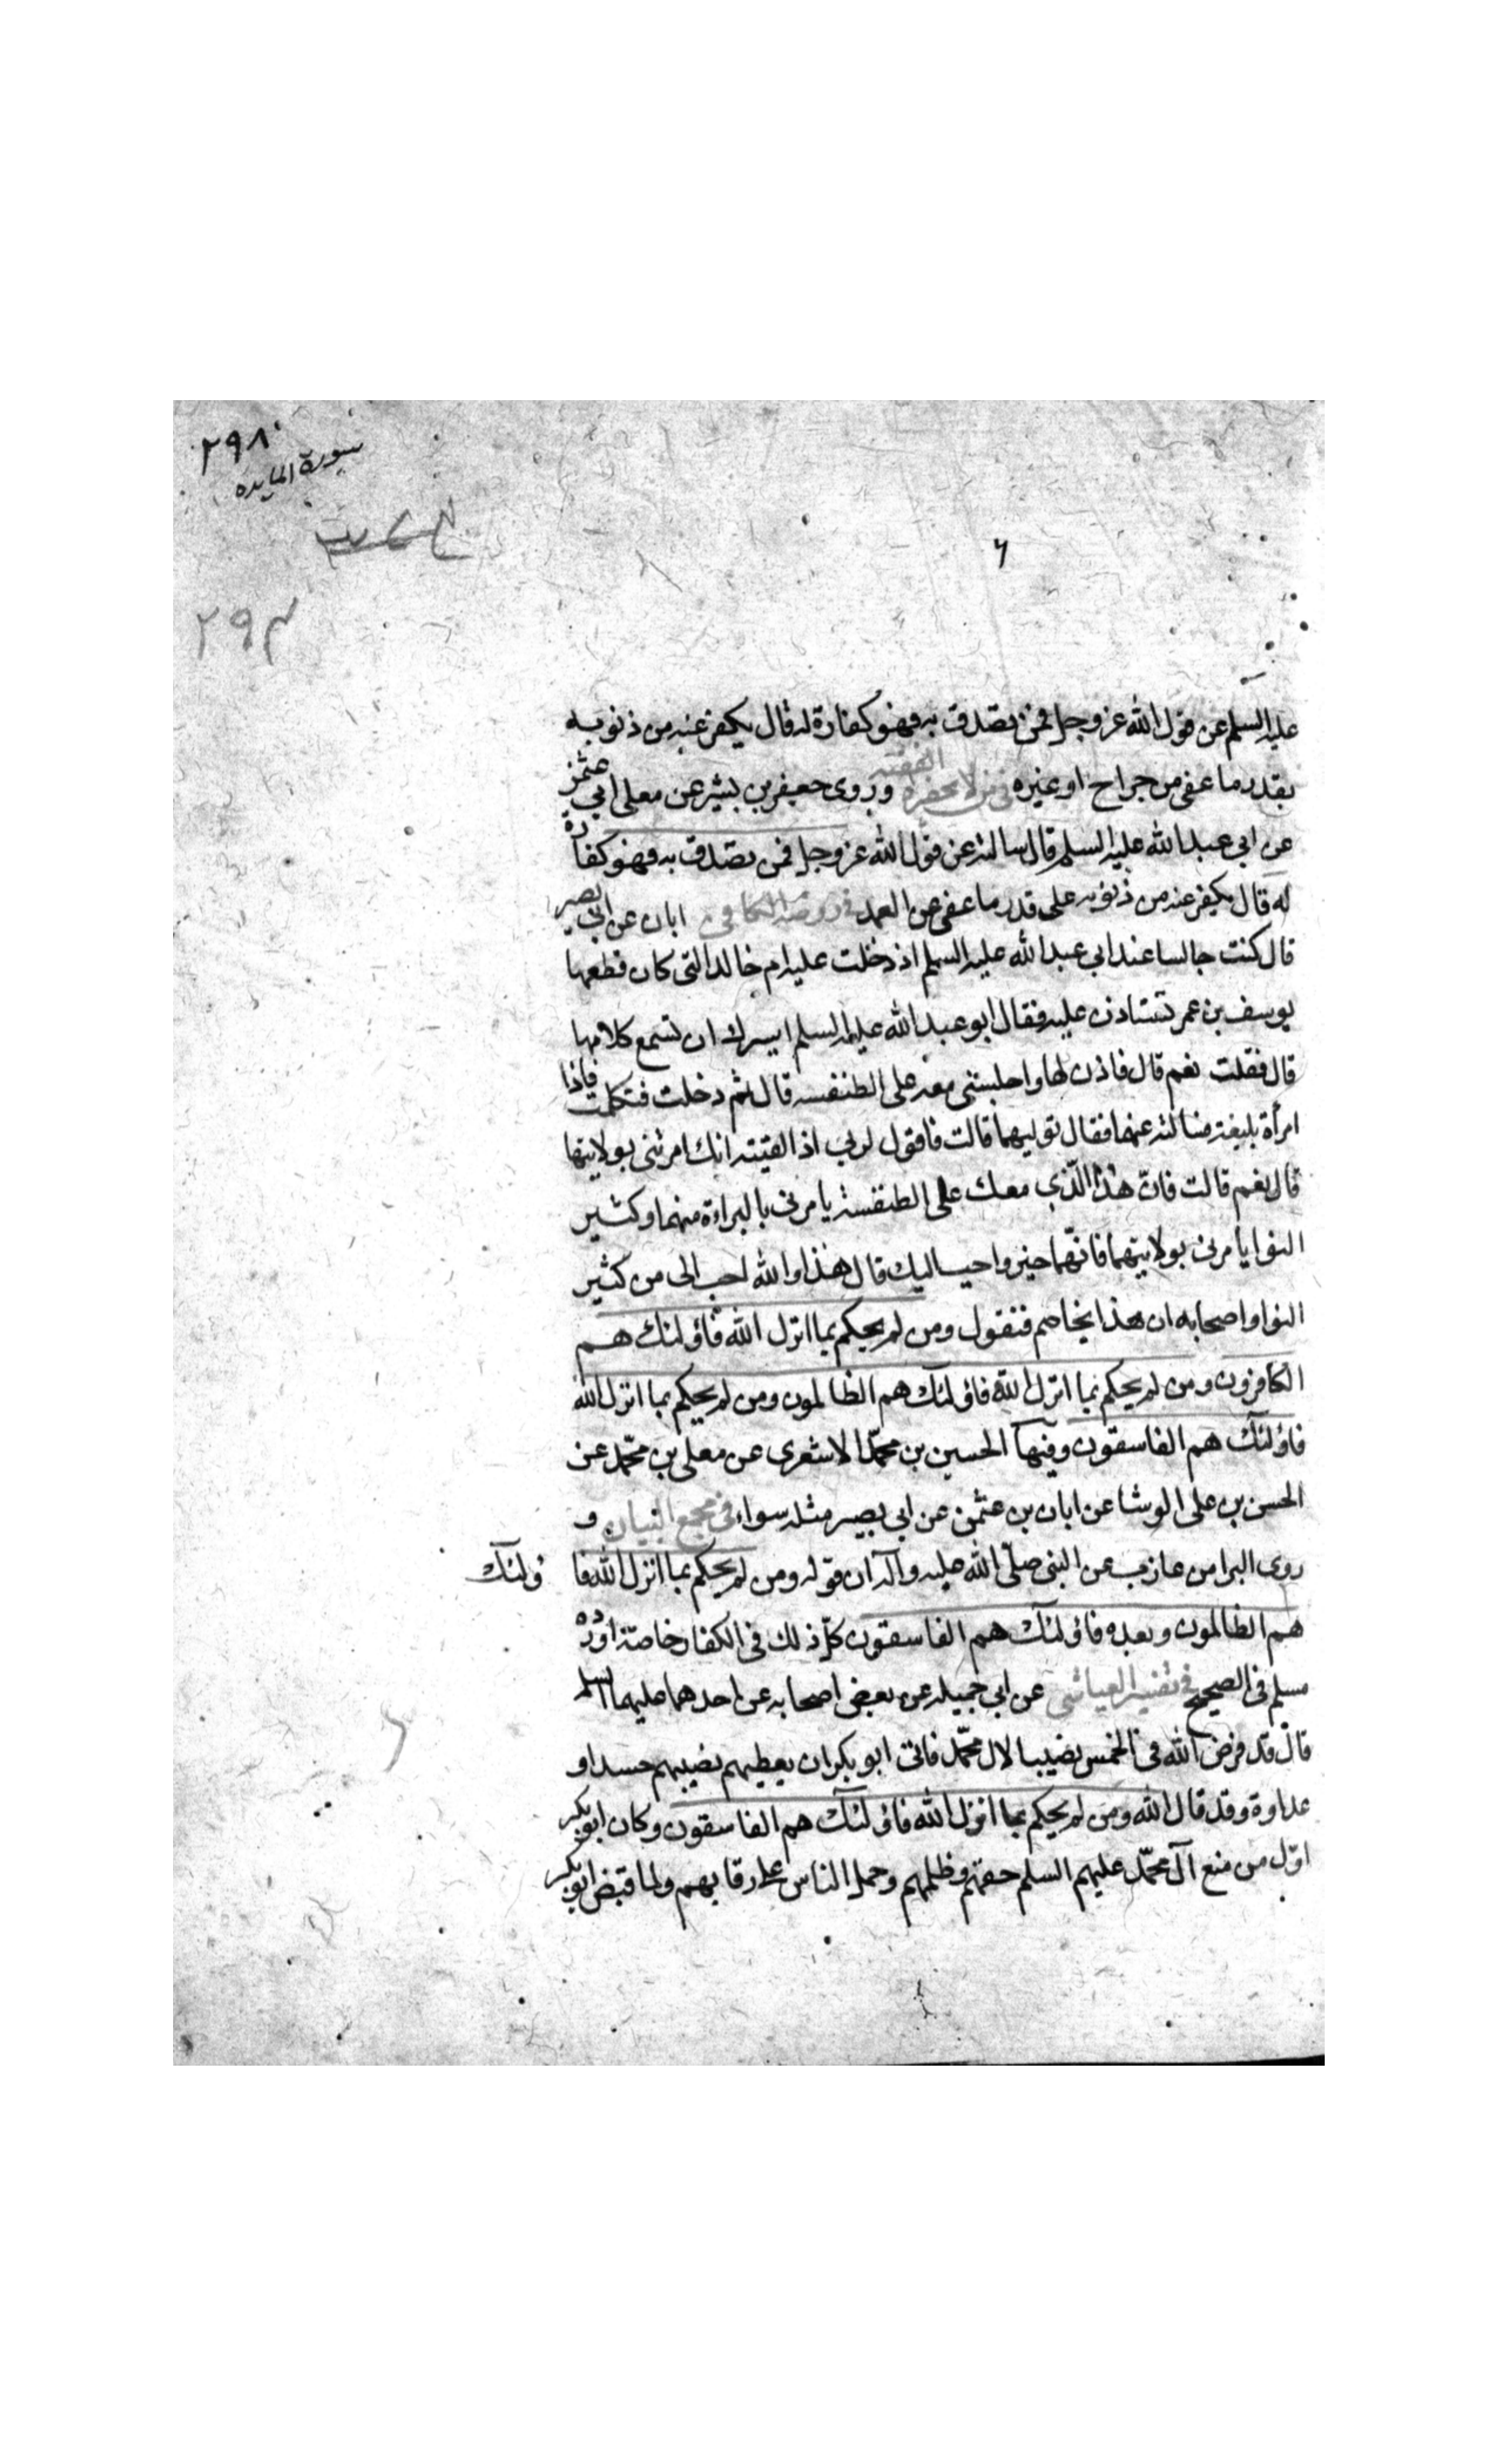 ٢٩٨
سورة المايده
٢٩٣
٦
عليه السلم عن قول الله عز وجل فمن تصدق به فهو كفارة له قال يكفر عنه من ذنوبه
بقدر ما عفى من جراح او غيره في من لا يحضره الفقيه وروى جعفر بن بشير عن معلى ابي عثمن
عن ابي عبد الله عليه السلم قال سالته عن قول الله عز وجل فمن تصدق به فهو كفارة
له قال يكفر عنه من ذنوبه على قدر ما عفى عن العمد في روضة الكافى ابان عن ابي بصير
قال كنت جالسا عند ابي عبد الله عليه السلم اذ دخلت عليه ام خالد التى كان قطعها
يوسف بن عمر تستاذن عليه فقال ابو عبد الله عليه السلم ايسرك ان تسمع كلامها
قال فقلت نعم قال فاذن لها واجلسنى معه على الطنفسه قال ثم دخلت فتكلمت فاذا
امرأة بليغة فسالته عنهما فقال توليهما قالت فاقول لربى اذا لقيته انك امرتنى بولايتها
قال نعم قالت فان هذا الذى معك على الطنفسة يامرنى بالبراءة منهما وكثير
النوا يامرنى بولايتهما فانهما خير واحب اليك قال هذا والله احب الى من كثير
النوا واصحابه ان هذا يخاصم فتقول ومن لم يحكم بما انزل الله فاولئك هم
الكافرون ومن لم يحكم بما انزل الله فاولئك هم الظالمون ومن لم يحكم بما انزل الله
فاولئك هم الفاسقون وفيها الحسين بن محمد الاشعرى عن معلى بن محمد عن
الحسن بن على الوشا عن ابان بن عثمن عن ابي بصير مثله سواء في مجمع البيان و
روى البرا بن عازب عن النبى صلى الله عليه وآله ان قوله ومن لم يحكم بما انزل الله فا ولئك
هم الظالمون وبعده فاولئك هم الفاسقون كل ذلك فى الكفار خاصة اورده
مسلم فى الصحيح في تفسير العياشى عن ابي جميله عن بعض اصحابه عن احدهما عليهما السلم
قال قد فرض الله فى الخمس نصيبا لال محمد فابى ابو بكر ان يعطيهم نصيبهم حسدا و
عداوة وقد قال الله ومن لم يحكم بما انزل الله فاولئك هم الفاسقون وكان ابو بكر
اول من منع آل محمد عليهم السلم حقهم وظلمهم وحمل الناس على رقابهم ولما قبض ابو بكر